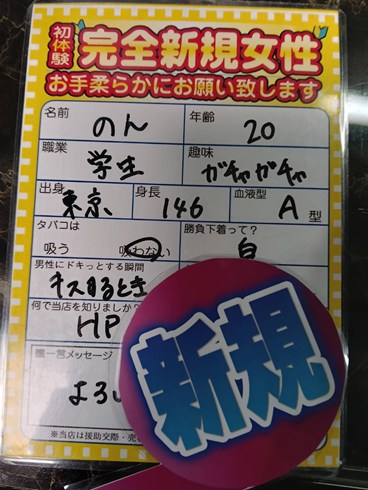 初体験 完全新規女性
お手柔らかにお願い致します
名前 のん 年齢 20
職業 学生 趣味 ガチャガチャ
出身 東京 身長 146 血液型 A型
タバコは 吸う 吸わない 勝負下着って? 白
男性にドキっとする瞬間
キスするとき
何で当店を知りましたか?
HP
一言メッセージ
よろ
※当店は援助交際・売
新規